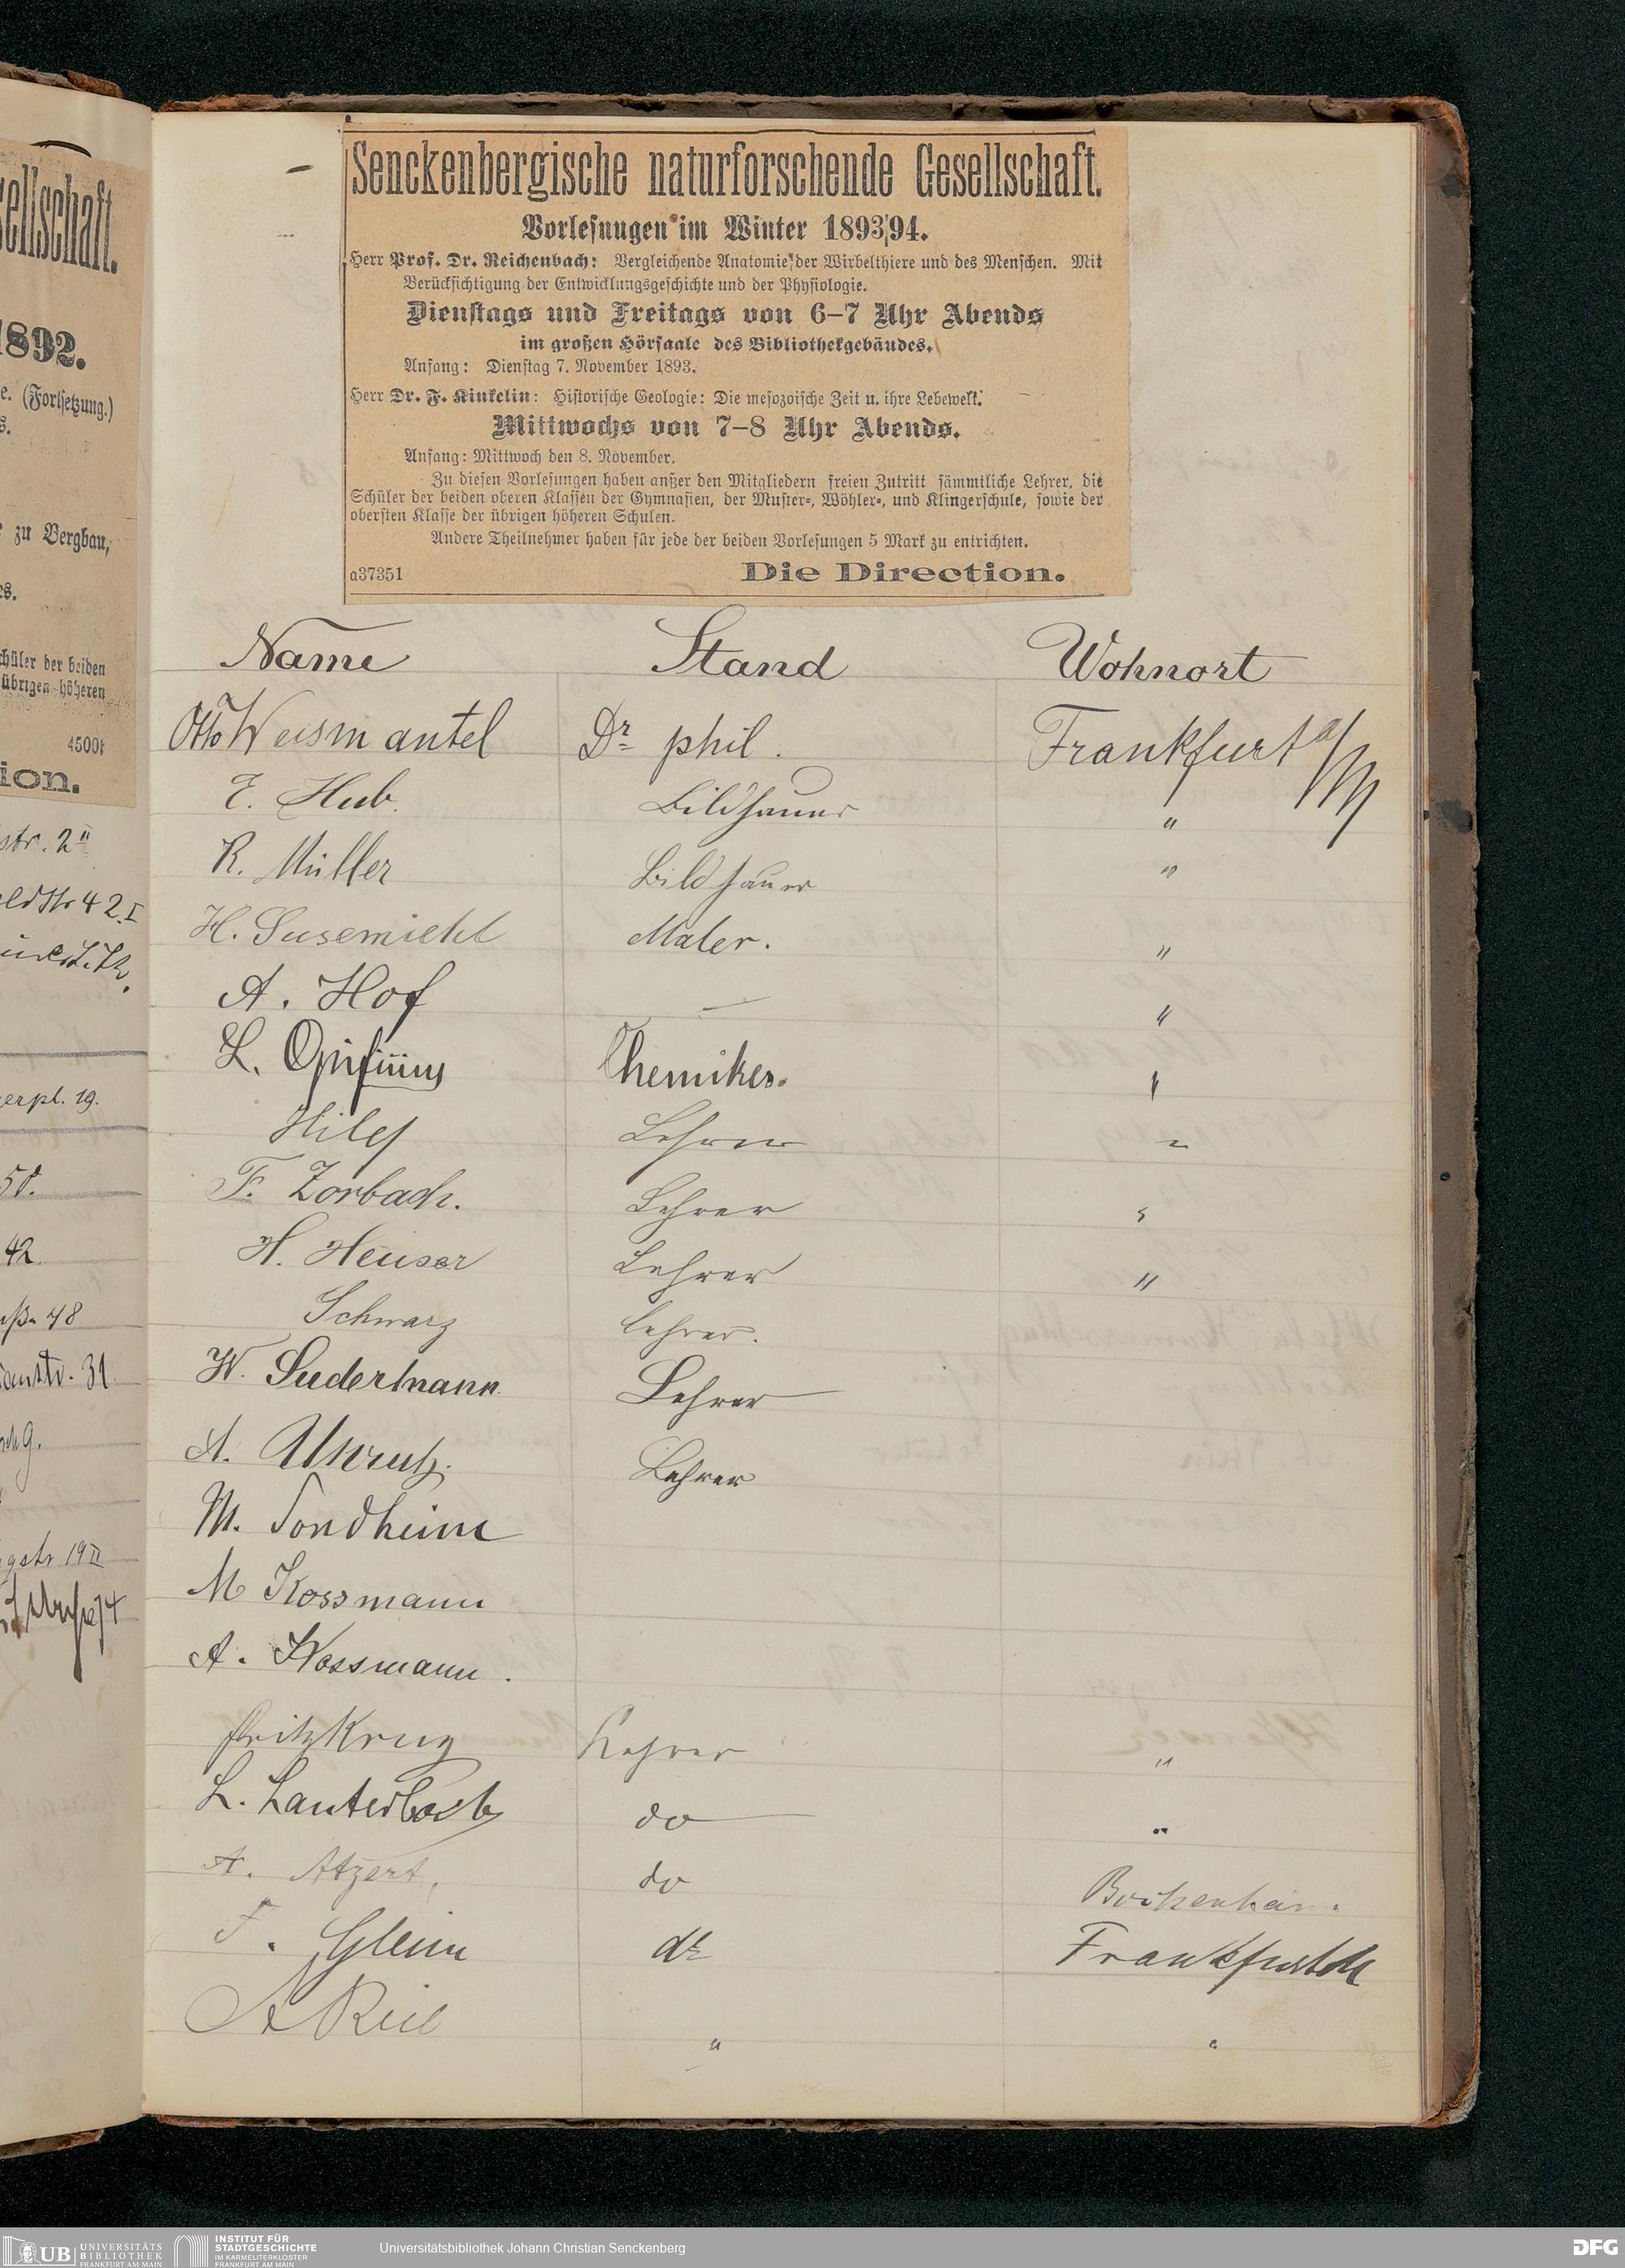 Senckenbergische naturforschende Gesellschaft.
Vorlesungen im Winter 1893/94.
Herr Prof. Dr. Reichenbach: Vergleichende Anatomie der Wirbelthiere und des Menschen. Mit
Berücksichtigung der Entwicklungsgeschichte und der Physiologie.
Dienstags und Freitags von 6–7 Uhr Abends
im großen Hörsaale des Bibliothekgebäudes.
Anfang: Dienstag 7. November 1893.
Herr Dr. F. Kinkelin: Historische Geologie: Die mesozoische Zeit u. ihre Lebewelt.
Mittwochs von 7–8 Uhr Abends.
Anfang: Mittwoch den 8. November.
Zu diesen Vorlesungen haben außer den Mitgliedern freien Zutritt sämmtliche Lehrer, die
Schüler der beiden oberen Klassen der Gymnasien, der Muster-, Wöhler-, und Klingerschule, sowie der
obersten Klasse der übrigen höheren Schulen.
Andere Theilnehmer haben für jede der beiden Vorlesungen 5 Mark zu entrichten.
a37351 Die Direction.
Name Stand Wohnort
Otto Weismantel Dr phil. Frankfurt a/M
E. Hub. Bildhauer "
R. Müller Bildhauer "
H. Susemiehl Maler. "
A. Hof — "
L. Opificius Chemiker. "
Lehrer "
F. Zorbach. Lehrer "
H. Heuser Lehrer "
Schwarz Lehrer.
W. Sudermann Lehrer
A. Lehrer
M. Sondheim
M Kossmann
A. Kossmann.
Fritz Krug Lehrer "
L. Lauterbach do "
A. Atzert, do Bockenheim.
F. Gleim do Frankfurt M
A " "
ellschaft.
1892.
e. (Fortsetzung.)
s.
zu Bergbau,
es.
chüler der beiden
übrigen höheren
4500
ion.
str. 2 II
42 I
erpl. 19.
50.
42
48
str. 31
9.
gstr 19 II
UB UNIVERSITÄTS
BIBLIOTHEK
FRANKFURT AM MAIN
INSTITUT FÜR
STADTGESCHICHTE
IM KARMELITERKLOSTER
FRANKFURT AM MAIN
Universitätsbibliothek Johann Christian Senckenberg
DFG